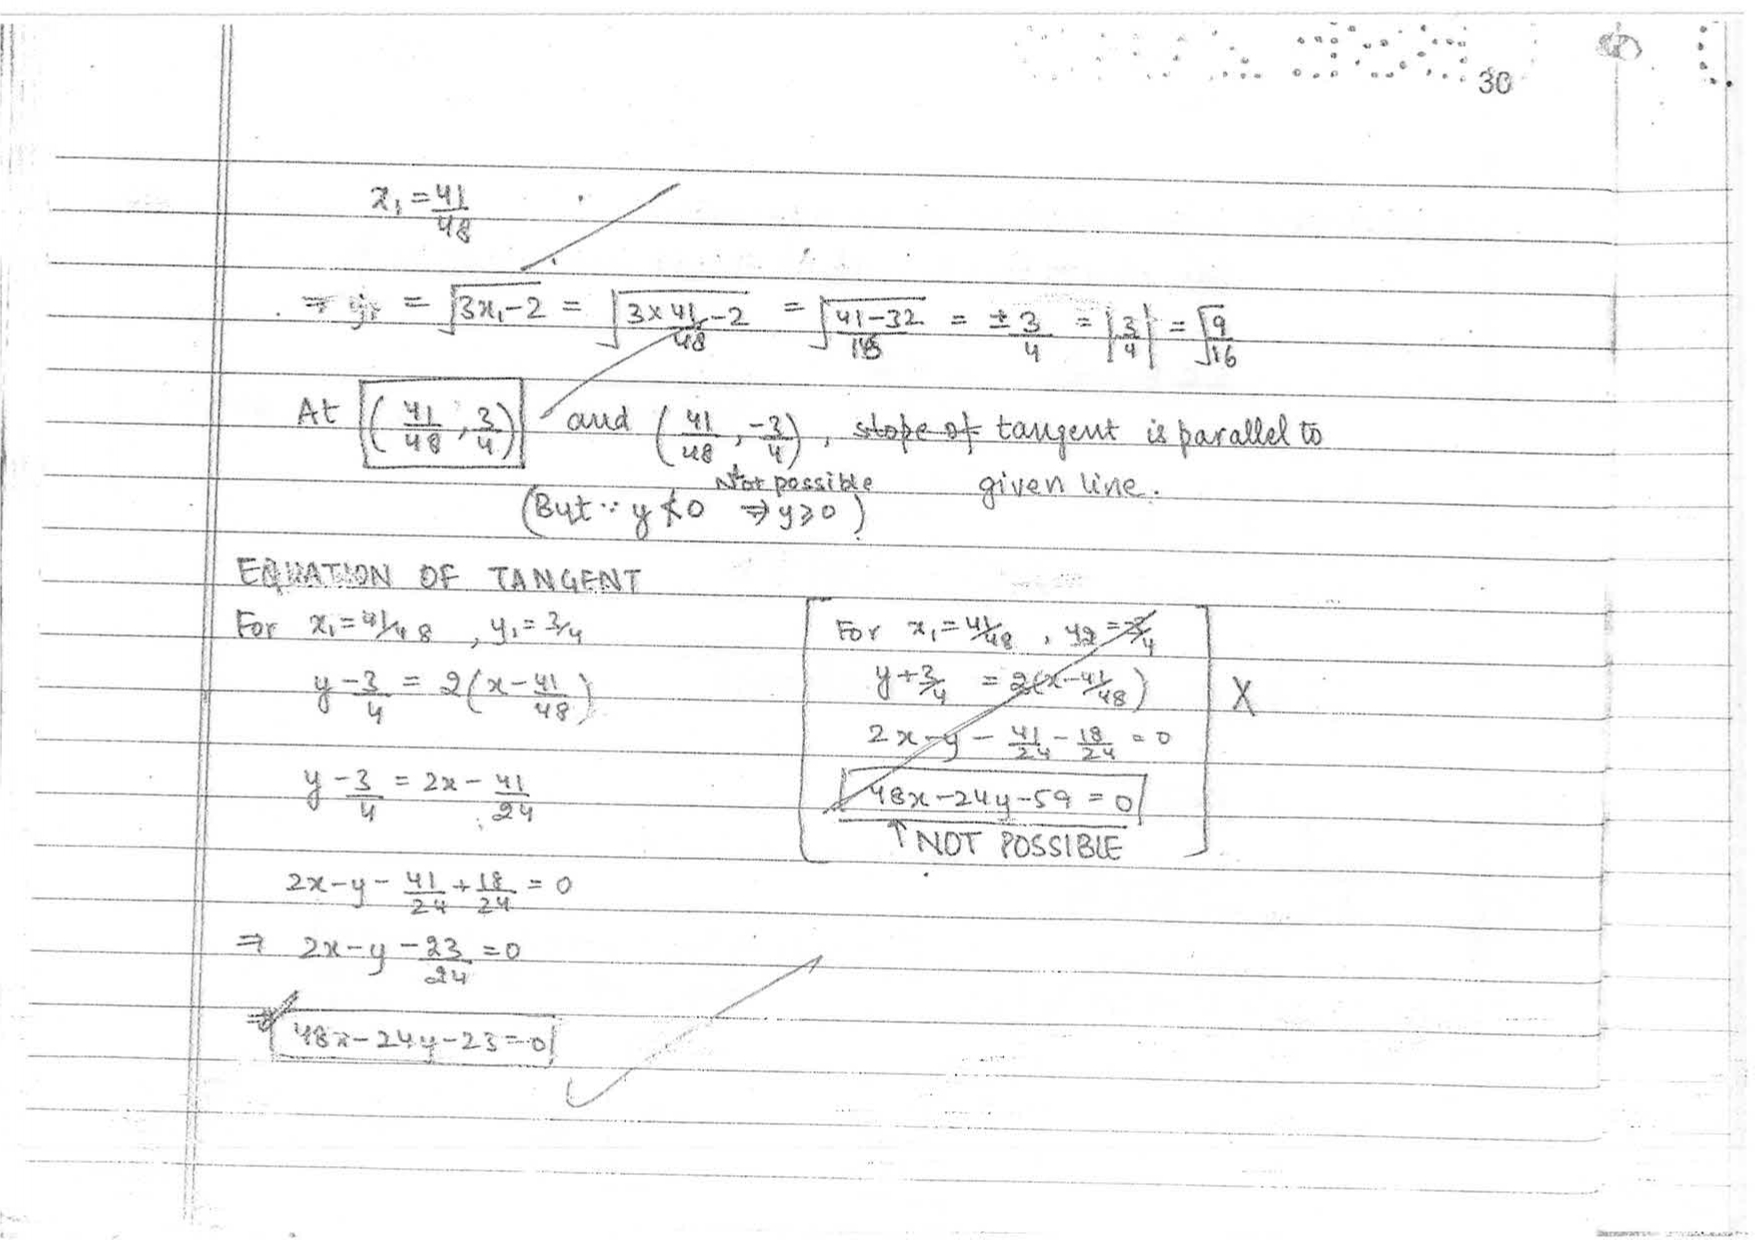 30
x₁ = 41/48
⇒ y₁ = √(3x₁-2) = √(3×41/48 -2) = √((41-32)/16) = ±3/4 = |3/4| = √(9/16)
At (41/48, 3/4) and (41/48, -3/4), slope of tangent is parallel to
Not possible given line.
(But ∵ y ≮ 0 ⇒ y ≥ 0)
EQUATION OF TANGENT
For x₁ = 41/48, y₁ = 3/4
y - 3/4 = 2(x - 41/48)
y - 3/4 = 2x - 41/24
2x - y - 41/24 + 18/24 = 0
⇒ 2x - y - 23/24 = 0
⇒ 48x - 24y - 23 = 0
For x₁ = 41/48, y₂ = -3/4
y + 3/4 = 2(x - 41/48)
2x - y - 41/24 - 18/24 = 0
48x - 24y - 59 = 0
↑ NOT POSSIBLE
X